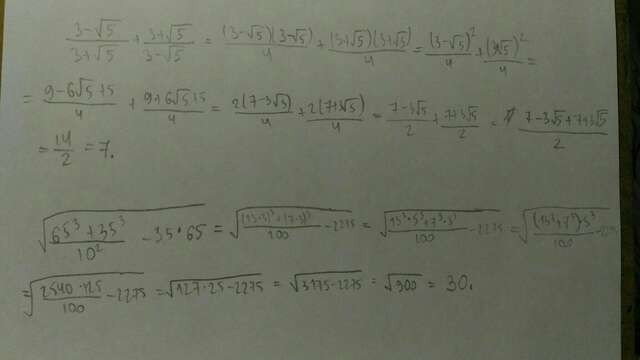 (3-√5)/(3+√5) + (3+√5)/(3-√5) = (3-√5)(3-√5)/4 + (3+√5)(3+√5)/4 = (3-√5)²/4 + (3+√5)²/4 =
= (9-6√5+5)/4 + (9+6√5+5)/4 = 2(7-3√5)/4 + 2(7+3√5)/4 = (7-3√5)/2 + (7+3√5)/2 = (7-3√5+7+3√5)/2
= 14/2 = 7.
√((65³+35³)/10² - 35·65) = √(((13·5)³+(7·5)³)/100 - 2275) = √((13³·5³+7³·5³)/100 - 2275) = √((13³+7³)·5³/100 - 2275)
= √(2540·125/100 - 2275) = √(127·25-2275) = √(3175-2275) = √900 = 30.